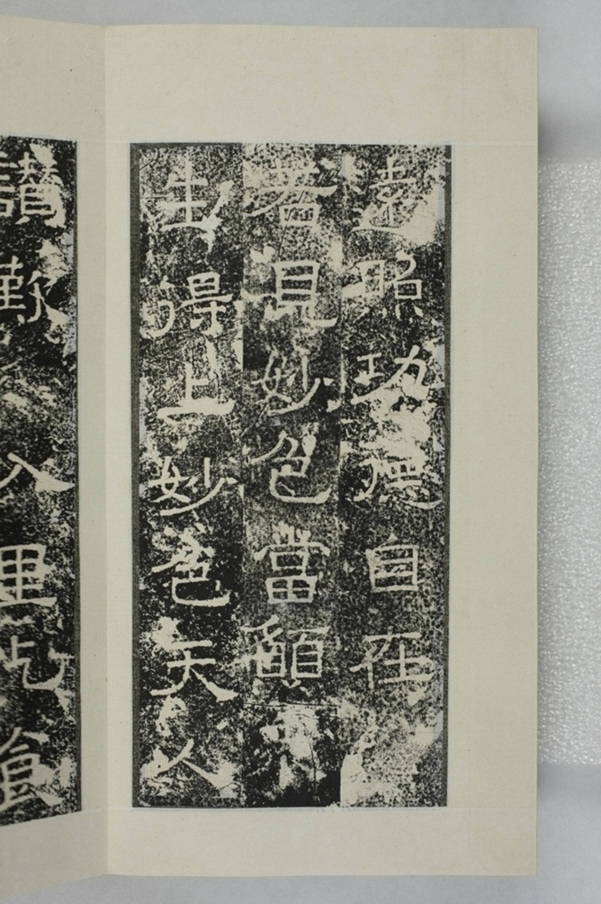 遠照功德自在
若見妙色當願
生得上妙色天人
讚歎入里乞食